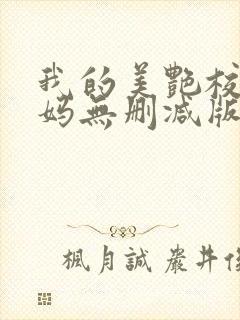 我的美艷校
妈無删减版
楓月誠 嚴井俊